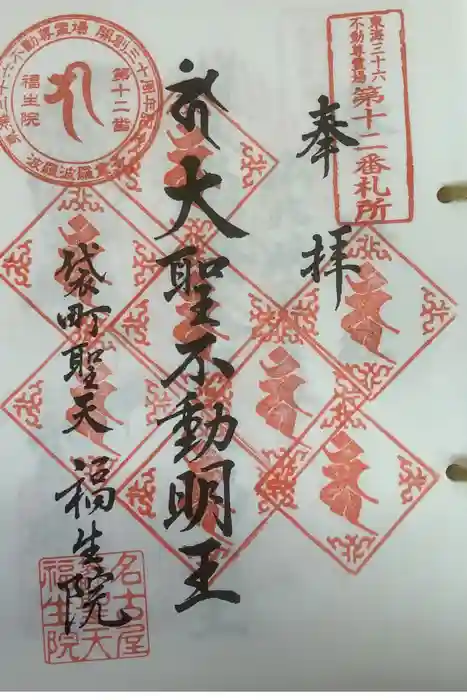 東海三十六
不動尊霊場
第十二番札所
奉拝
大聖不動明王
袋町聖天
福生院
第十二番
福生院
名古屋
福生院